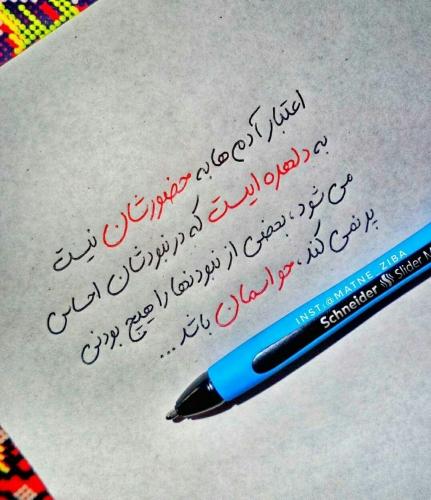 اعتبار آدم ها به حضورشان نیست
به دلهره ایست که در نبودشان احساس
می شود، بعضی از نبودنها را هیچ بودنی
پر نمی کند، حواسمان باشد...
INST:@MATNE_ZIBA
Schneider Slider M